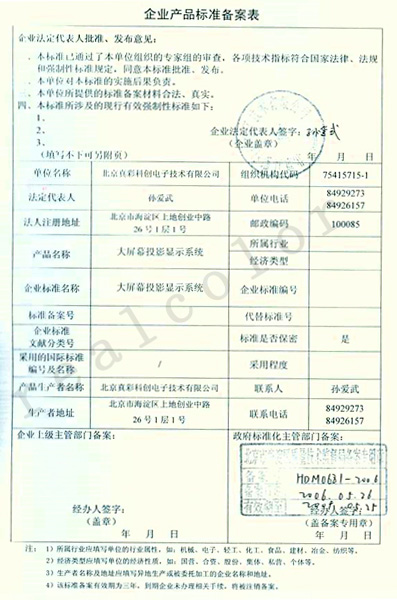 企业产品标准备案表
企业法定代表人批准、发布意见：
一、本标准已通过了本单位组织的专家组的审查，各项技术指标符合国家法律、法规
和强制性标准规定，同意本标准批准、发布。
二、本单位对本标准的实施后果负责。
三、本单位所提供的标准备案材料合法、真实。
四、本标准所涉及的现行有效强制性标准如下：
1、
2、
3、
企业法定代表人签字：孙爱武
（企业盖章）
（填写不下可另附页） 年 月 日
单位名称 北京真彩科创电子技术有限公司 组织机构代码 75415715-1
法定代表人 孙爱武 单位电话 84929273
84926157
法人注册地址 北京市海淀区上地创业中路
26号1层1号 邮政编码 100085
产品名称 大屏幕投影显示系统 所属行业
经济类型
企业标准名称 大屏幕投影显示系统 企业标准编号
标准备案号 代替标准号
企业标准
文献分类号 标准是否保密 是
采用的国际标准
编号及名称 / 采用程度
产品生产者名称 北京真彩科创电子技术有限公司 联系人 孙爱武
生产者地址 北京市海淀区上地创业中路
26号1层1号 联系电话 84929273
84926157
企业上级主管部门备案： 政府标准化主管部门备案：
HDM0631-2006
2006.05.26
经办人签字： 经办人签字：
（盖章） （盖备案专用章）
年 月 日 年 月 日
注： 1）所属行业应填写单位的行业属性，如：机械、电子、轻工、化工、食品、建材、冶金、纺织等。
2）经济类型应填写单位的经济性质，如：国营、合营、股份、集体、私营、个体等。
3）生产者名称及地址应填写异地生产或被委托加工的企业名称和地址。
4）该标准备案有效期为三年，到期企业未办理相关手续，将被注销备案。
realcolor